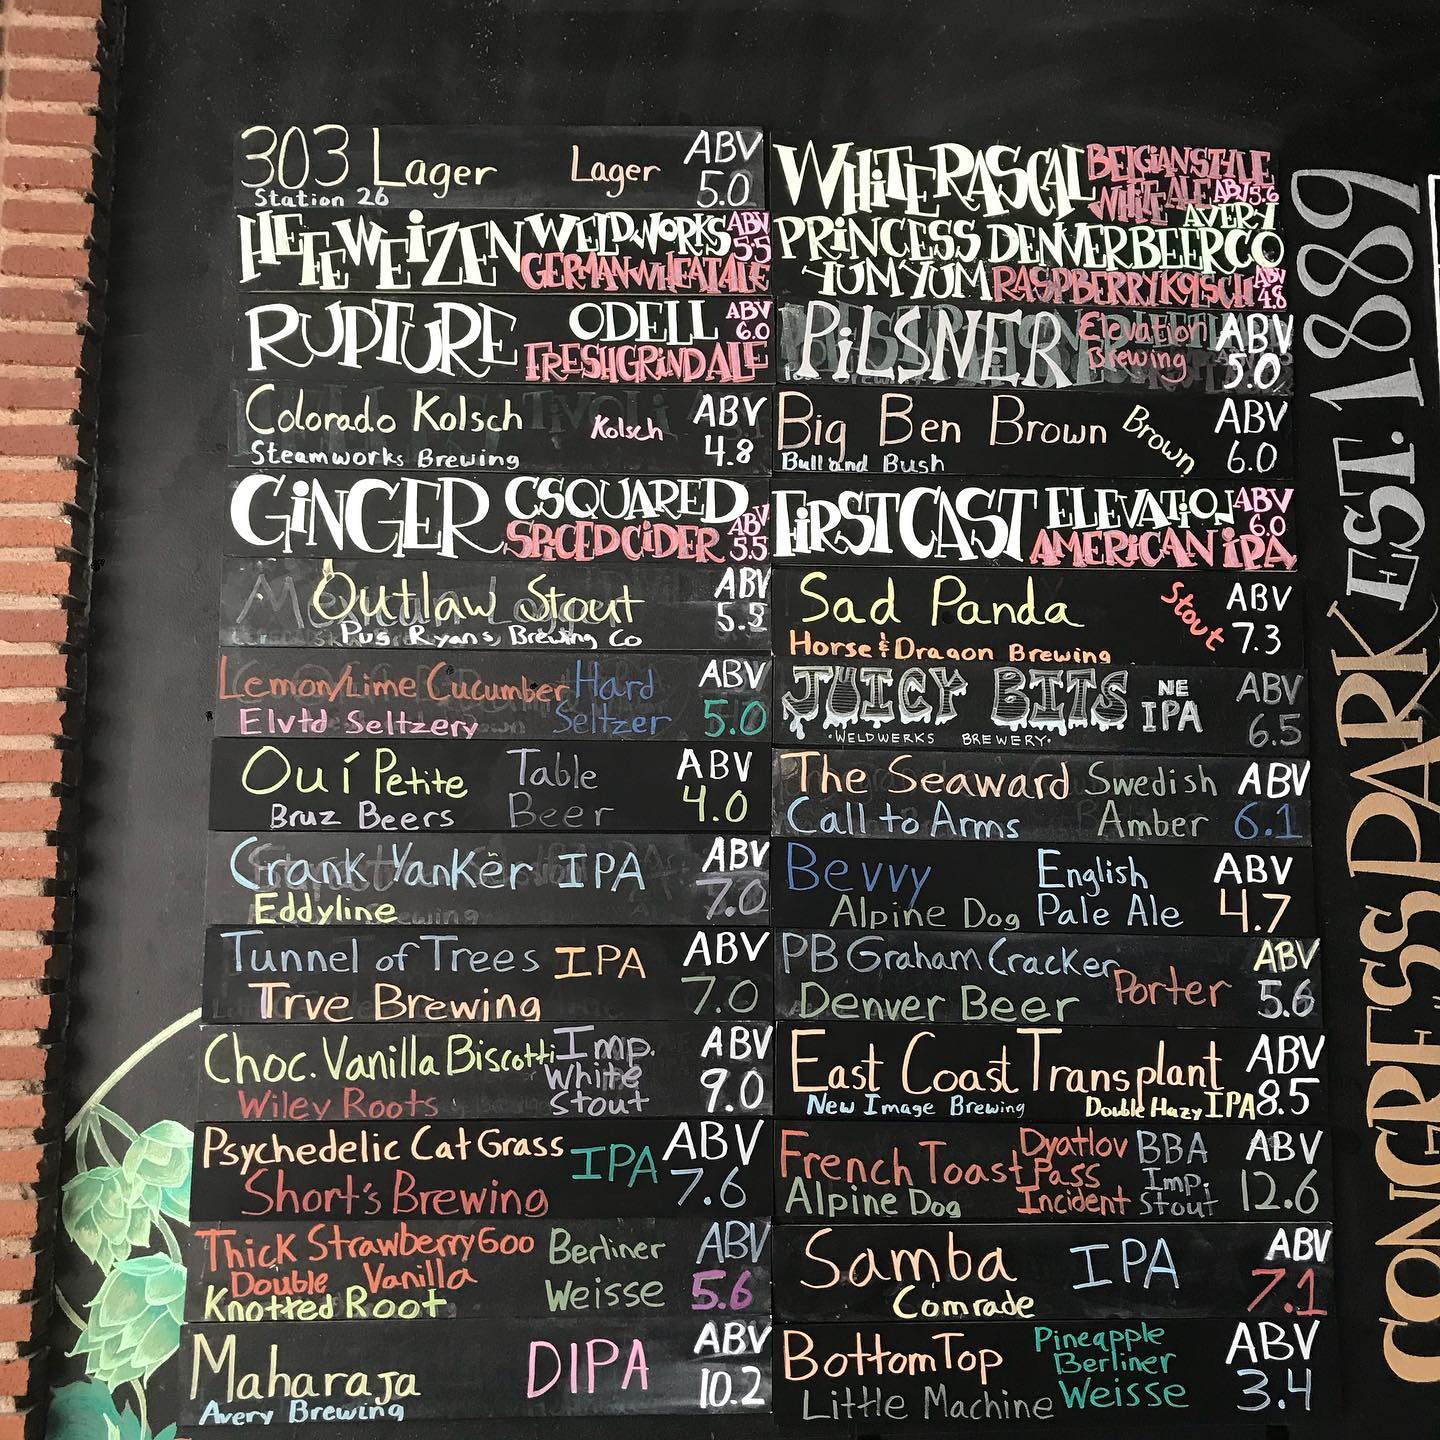 303 Lager Lager ABV 5.0
Station 26
HEFEWEiZEN WELDWORKS ABV 5.5
GERMAN WHEAT ALE
RUPTURE ODELL ABV 6.0
FRESH GRIND ALE
Colorado Kolsch Kolsch ABV 4.8
Steamworks Brewing
GiNGER CSQUARED ABV 5.5
SPICED CiDER
Outlaw Stout ABV
Pug Ryans Brewing Co
Lemon/Lime Cucumber Hard Seltzer ABV 5.0
Elvtd Seltzery
Ouí Petite Table Beer ABV 4.0
Bruz Beers
Crank Yanker IPA ABV 7.0
Eddyline
Tunnel of Trees IPA ABV 7.0
Trve Brewing
Choc. Vanilla Biscotti Imp. White Stout ABV 9.0
Wiley Roots
Psychedelic Cat Grass IPA ABV 7.6
Short's Brewing
Thick Strawberry Goo Berliner Weisse ABV 5.6
Double Vanilla
Knotted Root
Maharaja DIPA ABV 10.2
Avery Brewing
WHiTE RASCAL BELGIAN STYLE
WHITE ALE ABV 5.6
AVERY
PRiNCESS DENVER BEER CO
YUM YUM RASPBERRY KOLSCH ABV 4.8
PiLSNER Elevation Brewing ABV 5.0
Big Ben Brown Brown ABV 6.0
Bull and Bush
FiRST CAST ELEVATiON ABV 6.0
AMERiCAN iPA
Sad Panda Stout ABV 7.3
Horse & Dragon Brewing
JUICY BITS NE IPA ABV 6.5
·WELDWERKS BREWERY·
The Seaward Swedish Amber ABV 6.1
Call to Arms
Bevvy English Pale Ale ABV 4.7
Alpine Dog
PB Graham Cracker Porter ABV 5.6
Denver Beer
East Coast Transplant ABV 8.5
New Image Brewing Double Hazy IPA
French Toast Dyatlov Pass Incident BBA Imp. Stout ABV 12.6
Alpine Dog
Samba IPA ABV 7.1
Comrade
Bottom Top Pineapple Berliner Weisse ABV 3.4
Little Machine
CONGRESS PARK EST. 1889